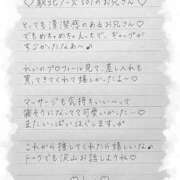 ♡ 歌北ノース501のお兄さん♡
とっても清潔感のあるお兄さん♡
でもめちゃめちゃえっちで、ギャップが
すごかったなあ〜♪
れいのプロフィール見て、差し入れも
買ってきてくれて嬉しかった〜！
マッサージも気持ちいいーって
寝そうになってて可愛いかった〜！
またいっぱいほぐします。
これから仲良くしてくれたら嬉しいな♪
トークでも沢山お話しようね♡